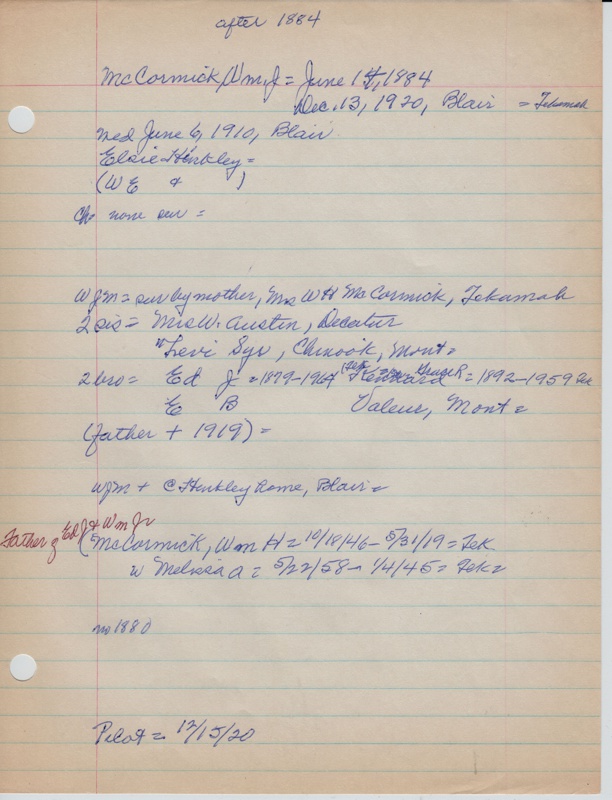 after 1884
McCormick, Wm, J = June 14, 1884
Dec. 13, 1920, Blair = Tekamah
Med June 6, 1910, Blair
Elsie Hinkley =
(W E & )
Ch none sur =
W J M = sur by mother, Mrs W H McCormick, Tekamah
2 sis = Mrs W. Austin, Decatur
" Levi Sye, Chinook, Mont =
2 bro = Ed J = 1879-1964 (Tek) = 1892-1959 Tek
E B Valeur, Mont =
(father + 1919) =
WJM + C Hinkley home, Blair =
Father of Ed J & Wm Jr
(McCormick, Wm H = 10/18/46 - 5/31/19 = Tek
w Melissa A = 5/22/58 - 1/4/45 = Tek =
no 1880
Pilot = 12/15/20